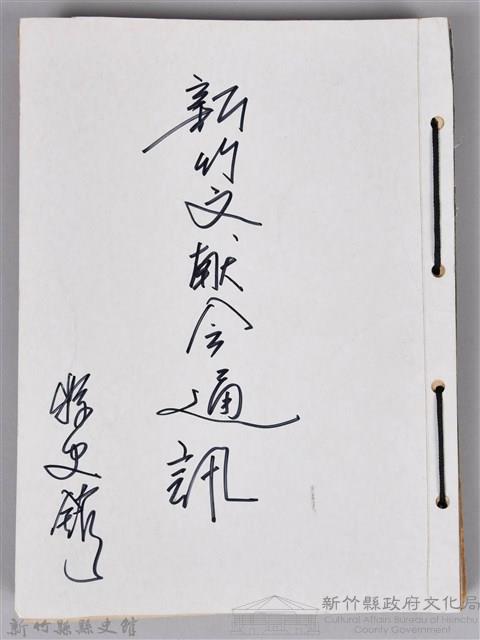 新竹文献会通訊
縣史館
新竹縣縣史館
新竹縣政府文化局
Cultural Affairs Bureau of Hsinchu
County Government